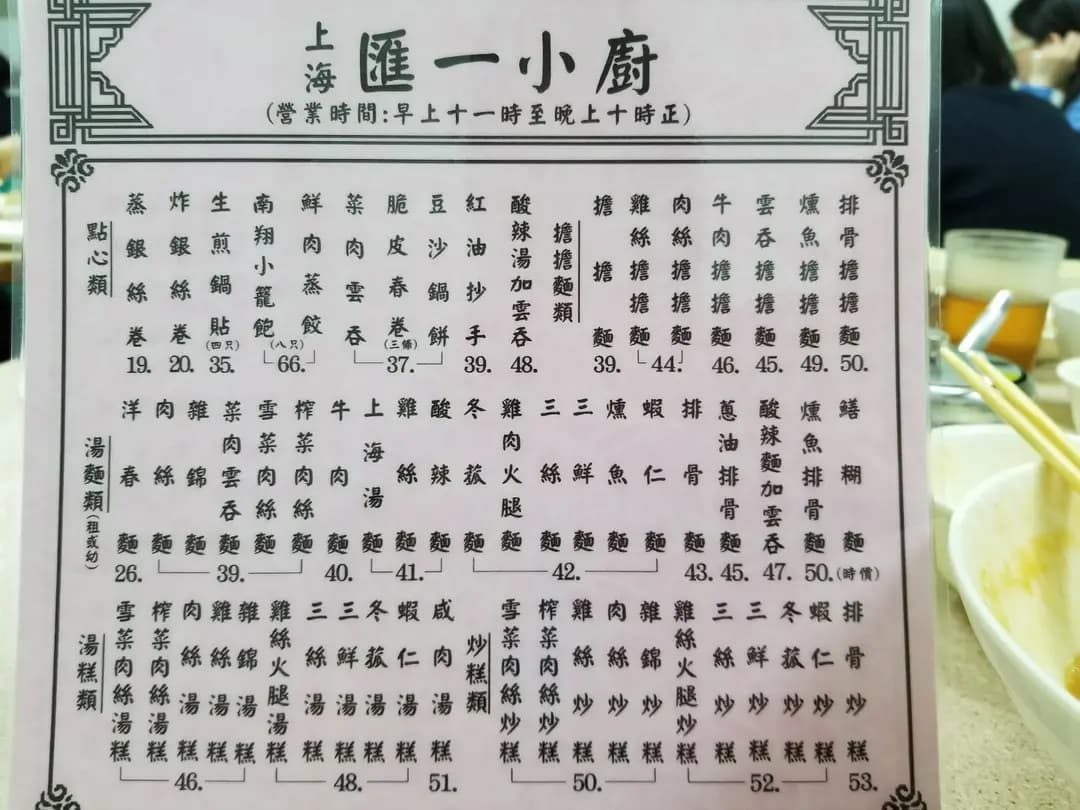 上海 匯一小廚
(營業時間:早上十一時至晚上十時正)
點心類
蒸銀絲卷 19.
炸銀絲卷 20.
生煎鍋貼(四只) 35.
南翔小籠飽
(八只)
鮮肉蒸餃
66.
菜肉雲吞
脆皮春卷(三條)
豆沙鍋餅
37.
紅油抄手 39.
酸辣湯加雲吞 48.
擔擔麵類
擔擔麵 39.
雞絲擔擔麵
肉絲擔擔麵
44.
牛肉擔擔麵 46.
雲吞擔擔麵 45.
燻魚擔擔麵 49.
排骨擔擔麵 50.
湯麵類(粗或幼)
洋春麵 26.
肉絲麵
雜錦麵
菜肉雲吞麵
雪菜肉絲麵
榨菜肉絲麵
39.
牛肉麵 40.
上海湯麵
雞絲麵
酸辣麵
41.
冬菰麵
雞肉火腿麵
三絲麵
三鮮麵
燻魚麵
蝦仁麵
42.
排骨麵 43.
蔥油排骨麵 45.
酸辣麵加雲吞 47.
燻魚排骨麵 50.
鱔糊麵 (時價)
湯糕類
雪菜肉絲湯糕
榨菜肉絲湯糕
肉絲湯糕
雞絲湯糕
雜錦湯糕
46.
雞絲火腿湯糕
三絲湯糕
三鮮湯糕
冬菰湯糕
蝦仁湯糕
48.
咸肉湯糕 51.
炒糕類
雪菜肉絲炒糕
榨菜肉絲炒糕
雞絲炒糕
肉絲炒糕
雜錦炒糕
50.
雞絲火腿炒糕
三絲炒糕
三鮮炒糕
冬菰炒糕
蝦仁炒糕
52.
排骨炒糕 53.